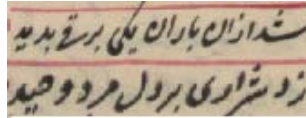 شد ازان باران یکی برقی بدید
زد شراری بر دل مرد وحید